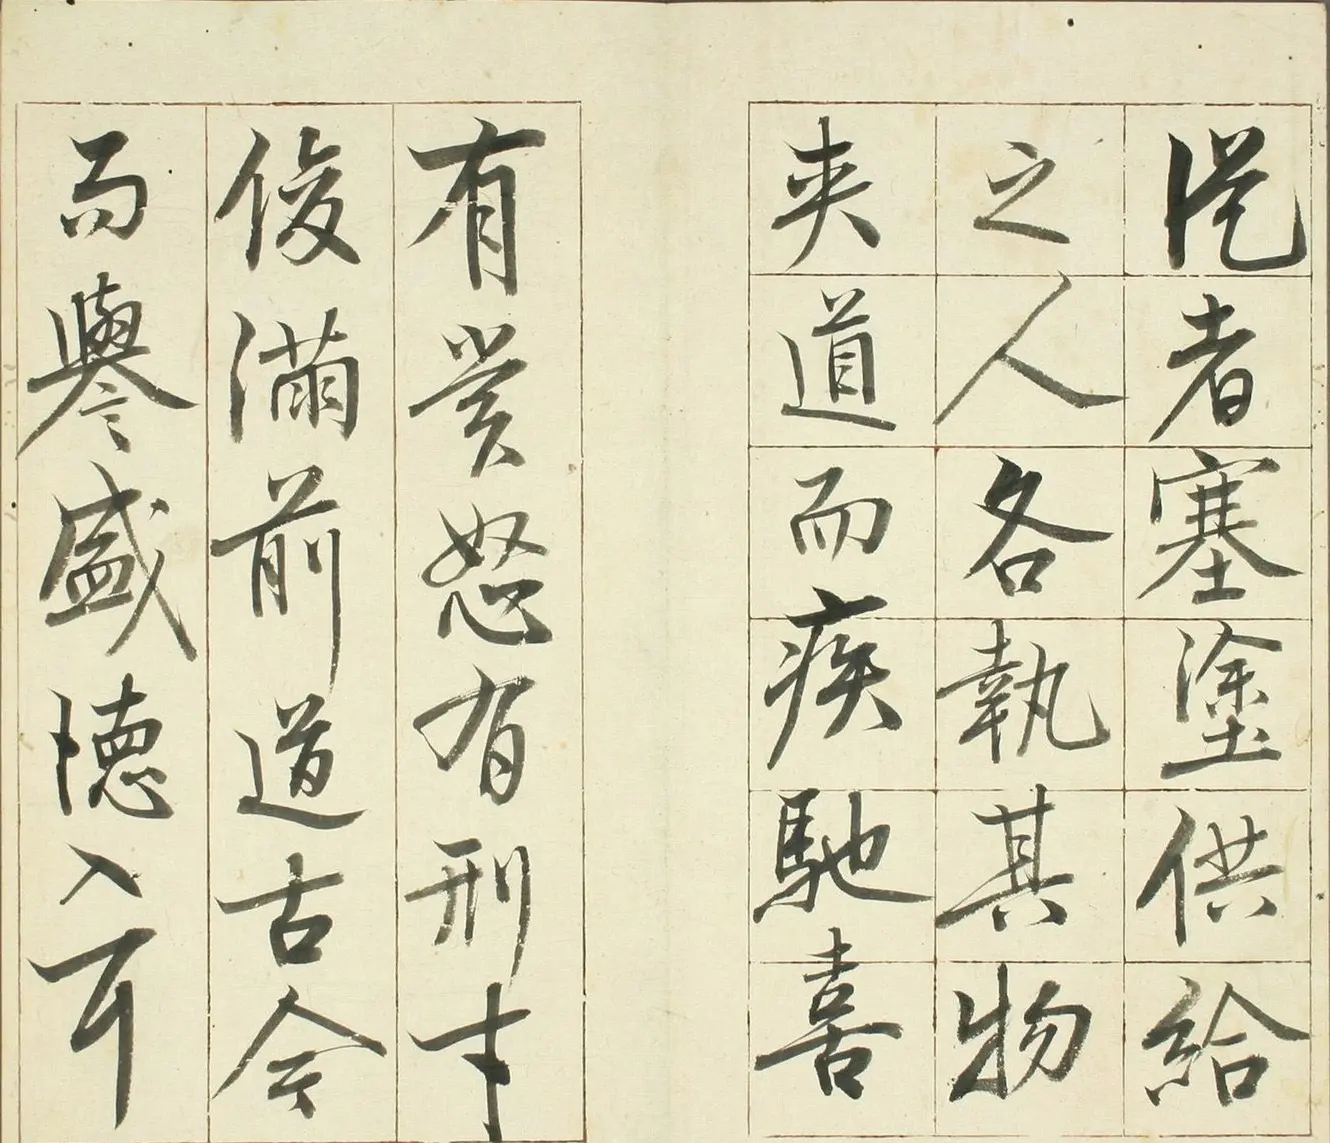 從者塞塗供給
之人各執其物
夾道而疾馳喜
有賞怒有刑才
俊滿前道古今
而譽盛德入耳